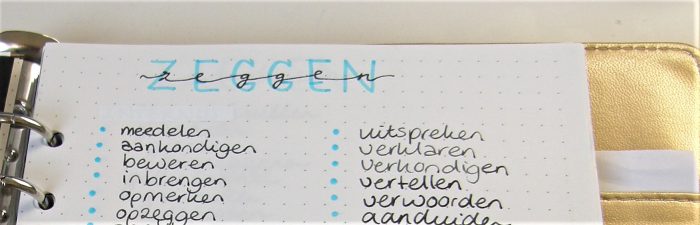 ZEGGEN
zeggen
meedelen
aankondigen
beweren
inbrengen
opmerken
opzeggen
uitspreken
verklaren
verkondigen
vertellen
verwoorden
aanduiden